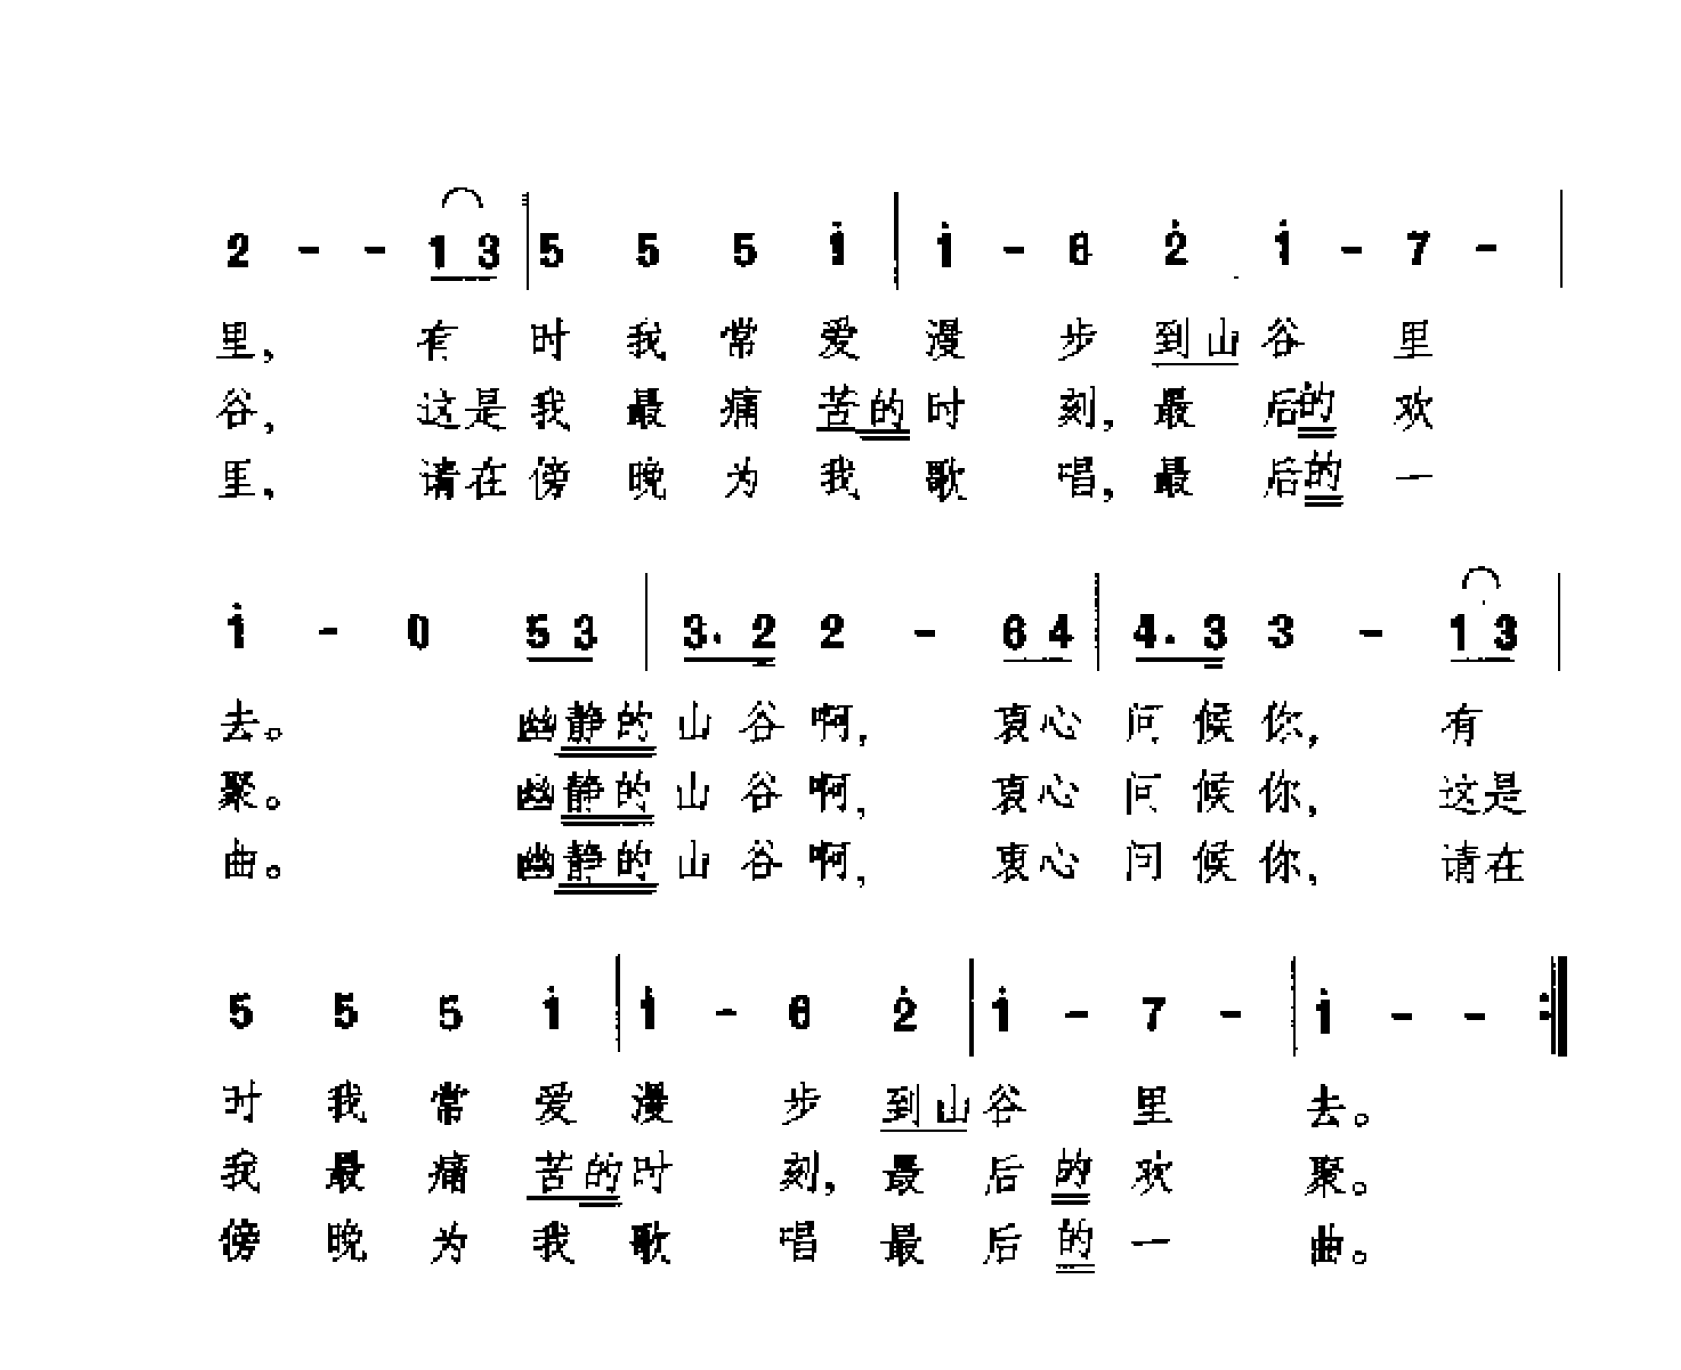 2 - - 1 3 | 5 5 5 i | i - 6 2̇ i - 7 - |
里, 有 时 我 常 爱 漫 步 到山谷 里
谷, 这是 我 最 痛 苦的 时 刻, 最 后的 欢
里, 请在 傍 晚 为 我 歌 唱, 最 后的 一
i - 0 5 3 | 3. 2 2 - 6 4 | 4. 3 3 - 1 3 |
去。 幽静的 山 谷 啊, 衷心 问 候 你, 有
聚。 幽静的 山 谷 啊, 衷心 问 候 你, 这是
曲。 幽静的 山 谷 啊, 衷心 问 候 你, 请在
5 5 5 i | i - 6 2̇ | i - 7 - | i - - :|
时 我 常 爱 漫 步 到山谷 里 去。
我 最 痛 苦的 时 刻, 最 后的 欢 聚。
傍 晚 为 我 歌 唱 最 后的 一 曲。